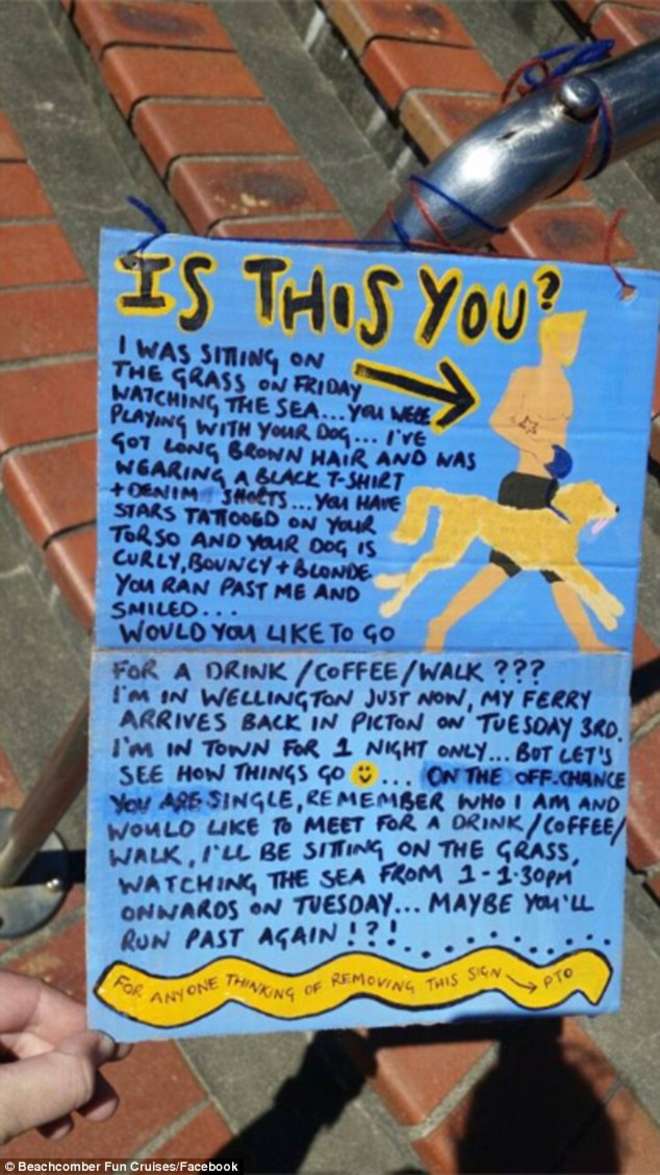 IS THIS YOU?
I WAS SITTING ON
THE GRASS ON FRIDAY
WATCHING THE SEA... YOU WERE
PLAYING WITH YOUR DOG... I'VE
GOT LONG BROWN HAIR AND WAS
WEARING A BLACK T-SHIRT
+ DENIM SHORTS... YOU HAVE
STARS TATTOOED ON YOUR
TORSO AND YOUR DOG IS
CURLY, BOUNCY + BLONDE
YOU RAN PAST ME AND
SMILED...
WOULD YOU LIKE TO GO
FOR A DRINK/COFFEE/WALK???
I'M IN WELLINGTON JUST NOW, MY FERRY
ARRIVES BACK IN PICTON ON TUESDAY 3RD.
I'M IN TOWN FOR 1 NIGHT ONLY... BUT LET'S
SEE HOW THINGS GO ☺... ON THE OFF-CHANCE
YOU ARE SINGLE, REMEMBER WHO I AM AND
WOULD LIKE TO MEET FOR A DRINK/COFFEE/
WALK, I'LL BE SITTING ON THE GRASS,
WATCHING THE SEA FROM 1-1·30PM
ONWARDS ON TUESDAY... MAYBE YOU'LL
RUN PAST AGAIN!?!..........
FOR ANYONE THINKING OF REMOVING THIS SIGN → PTO
© Beachcomber Fun Cruises/Facebook